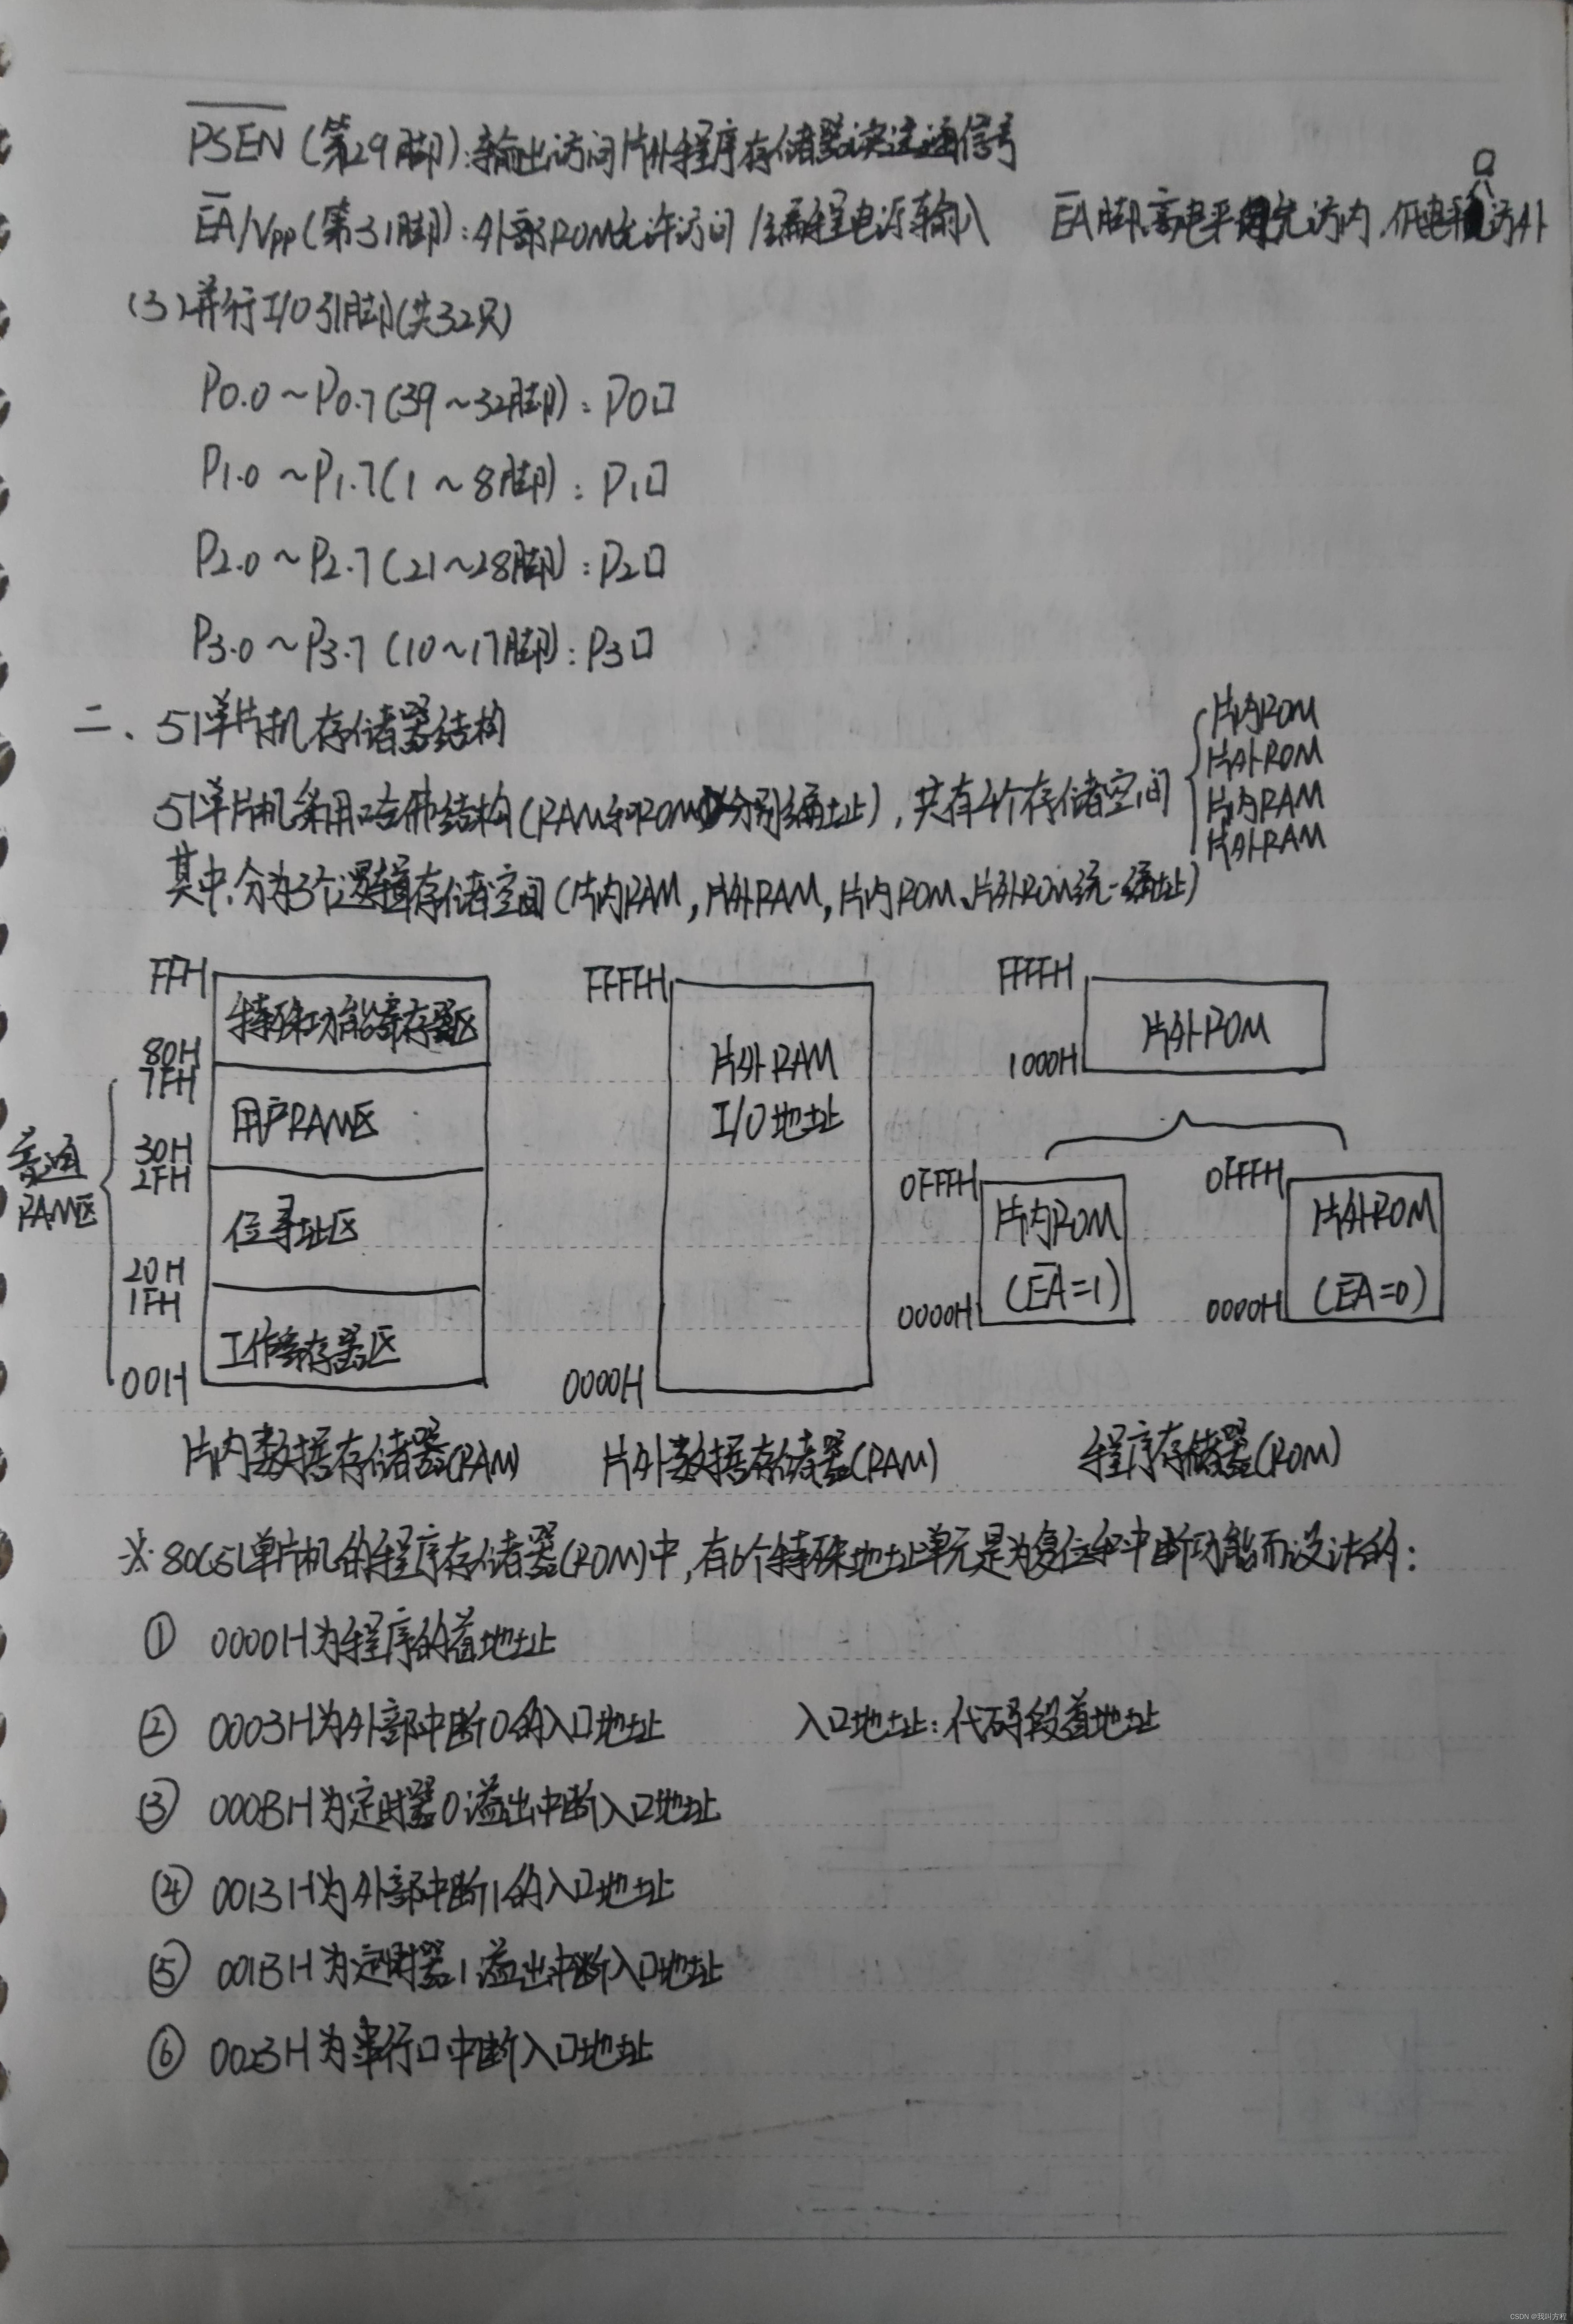 PSEN (第29脚):输出访问片外程序存储器读选通信号
EA/Vpp(第31脚):外部ROM允许访问/编程电源输入 EA脚高电平先访内,低电平访外
(3)并行I/O引脚(共32只)
P0.0~P0.7(39~32脚):P0口
P1.0~P1.7(1~8脚):P1口
P2.0~P2.7(21~28脚):P2口
P3.0~P3.7(10~17脚):P3口
二、51单片机存储器结构
51单片机采用哈佛结构(RAM和ROM分别编址),共有4个存储空间
片内ROM
片外ROM
片内RAM
片外RAM
其中,分为3个逻辑存储空间(片内RAM,片外RAM,片内ROM、片外ROM统一编址)
FFH
特殊功能寄存器区
80H
7FH
用户RAM区
30H
2FH
普通
RAM区
位寻址区
20H
1FH
工作寄存器区
00H
片内数据存储器(RAM)
FFFFH
片外RAM
I/O地址
0000H
片外数据存储器(RAM)
FFFFH
片外ROM
1000H
0FFFH
片内ROM
(EA=1)
0000H
0FFFH
片外ROM
(EA=0)
0000H
程序存储器(ROM)
※ 80C51单片机的程序存储器(ROM)中,有6个特殊地址单元是为复位和中断功能而设计的:
① 0000H为程序的首地址
② 0003H为外部中断0的入口地址 入口地址:代码段首地址
③ 000BH为定时器0溢出中断入口地址
④ 0013H为外部中断1的入口地址
⑤ 001BH为定时器1溢出中断入口地址
⑥ 0023H为串行口中断入口地址
CSDN @我叫方程